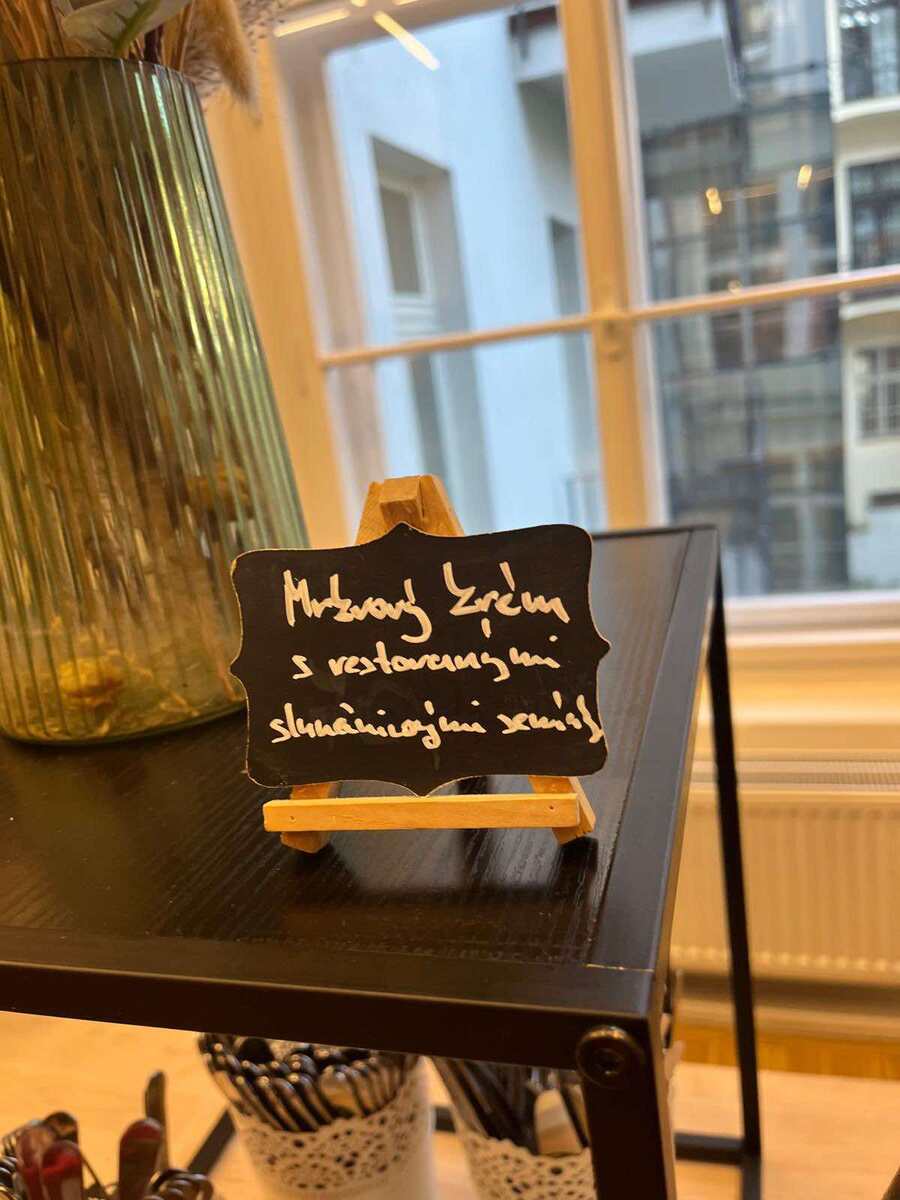 Mrkvový krém
s restovanými
slunánicovými semínky